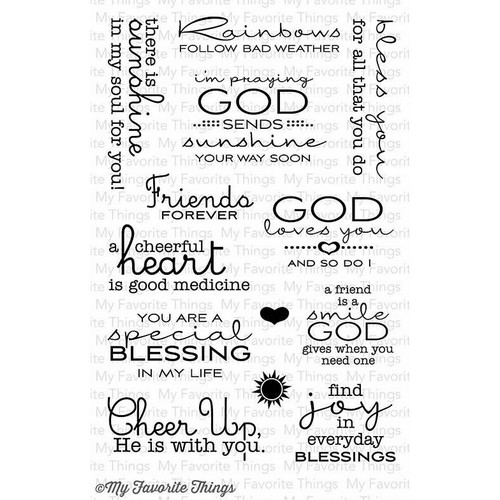 there is
sunshine
in my soul for you!
Rainbows
FOLLOW BAD WEATHER
bless you
for all that you do
i'm praying
GOD
SENDS
sunshine
YOUR WAY SOON
Friends
FOREVER
GOD
loves you
AND SO DO I
a cheerful
heart
is good medicine
a friend
is a
smile
GOD
gives when you
need one
YOU ARE A
special
BLESSING
IN MY LIFE
find
joy
in
everyday
BLESSINGS
Cheer Up,
He is with you.
©My Favorite Things